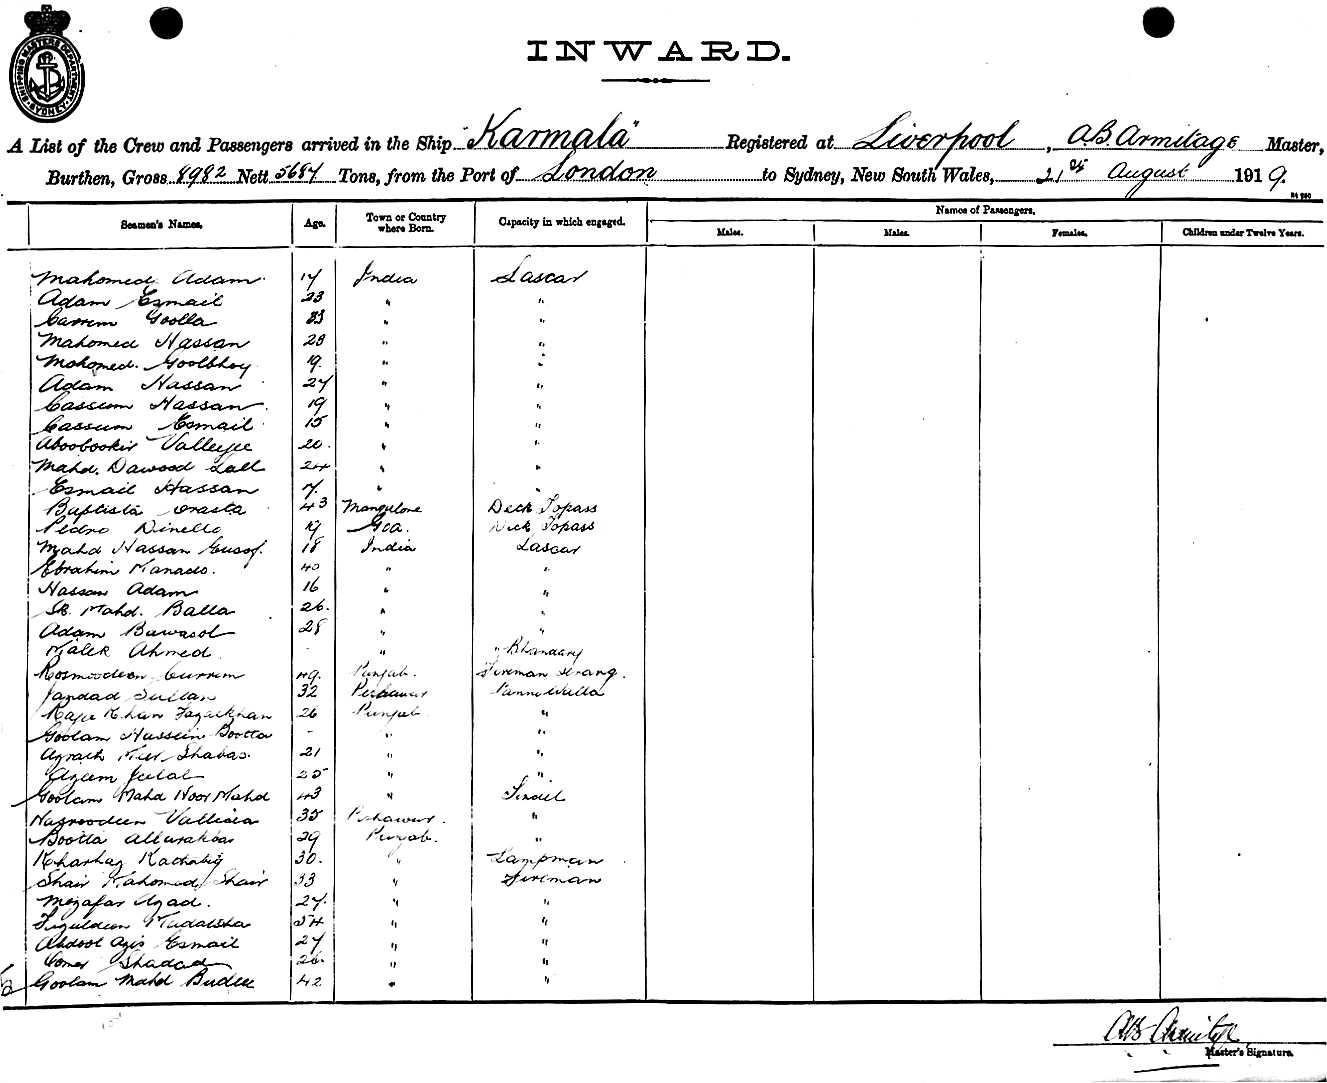 SHIPPING MASTERS DEPARTMENT SYDNEY
INWARD.
A List of the Crew and Passengers arrived in the Ship "Karmala" Registered at Liverpool, A.B. Armitage Master,
Burthen, Gross 8982 Nett 5684 Tons, from the Port of London to Sydney, New South Wales, 21st August 1919.
Names of Passengers.
Seamen's Names. Age. Town or Country where Born. Capacity in which engaged. Males. Males. Females. Children under Twelve Years.
Mahomed Adam 17 India Lascar
Adam Esmail 23 " "
Carrim Goolla " "
Mahomed Hassan 28 " "
Mohomed Goolbhoy 19 " "
Adam Hassan 27 " "
Cassum Hassan 19 " "
Cassum Esmail 15 " "
Aboobookir Valleyjee 20 " "
Mahd. Dawood Lall 24 " "
Esmail Hassan " "
Baptista Crasta 43 Mangalore Deck Topass
Pedro Dinello 19 Goa. Deck Topass
Mahd Hassan Eusof. 18 India Lascar
Ebrahim 40 " "
Hassan Adam 16 " "
Sk. Mahd. Balla 26. " "
Adam Bawasol 28 " "
Malek Ahmed - " " Bhandary
Currim 49. Punjab. Fireman Serang.
Jandad Sultan 32 Peshawur
Raja Khan 26 Punjab "
Goolam Hussein Bootta - " "
21 " "
Azeem Jalal 25 " "
Goolam Mahd Noor Mahd 43 " Tindel
35 Peshawur. "
Bootta 29 Punjab. "
30. " Lampman
Shair Mahomed Shair 33 " Fireman
Mozafar Azad. 27. " "
" "
Abdool Azis Esmail 27 " "
Shadad 26. " "
Goolam Mahd Budle 42 " "
AB Armitage
Master's Signature.